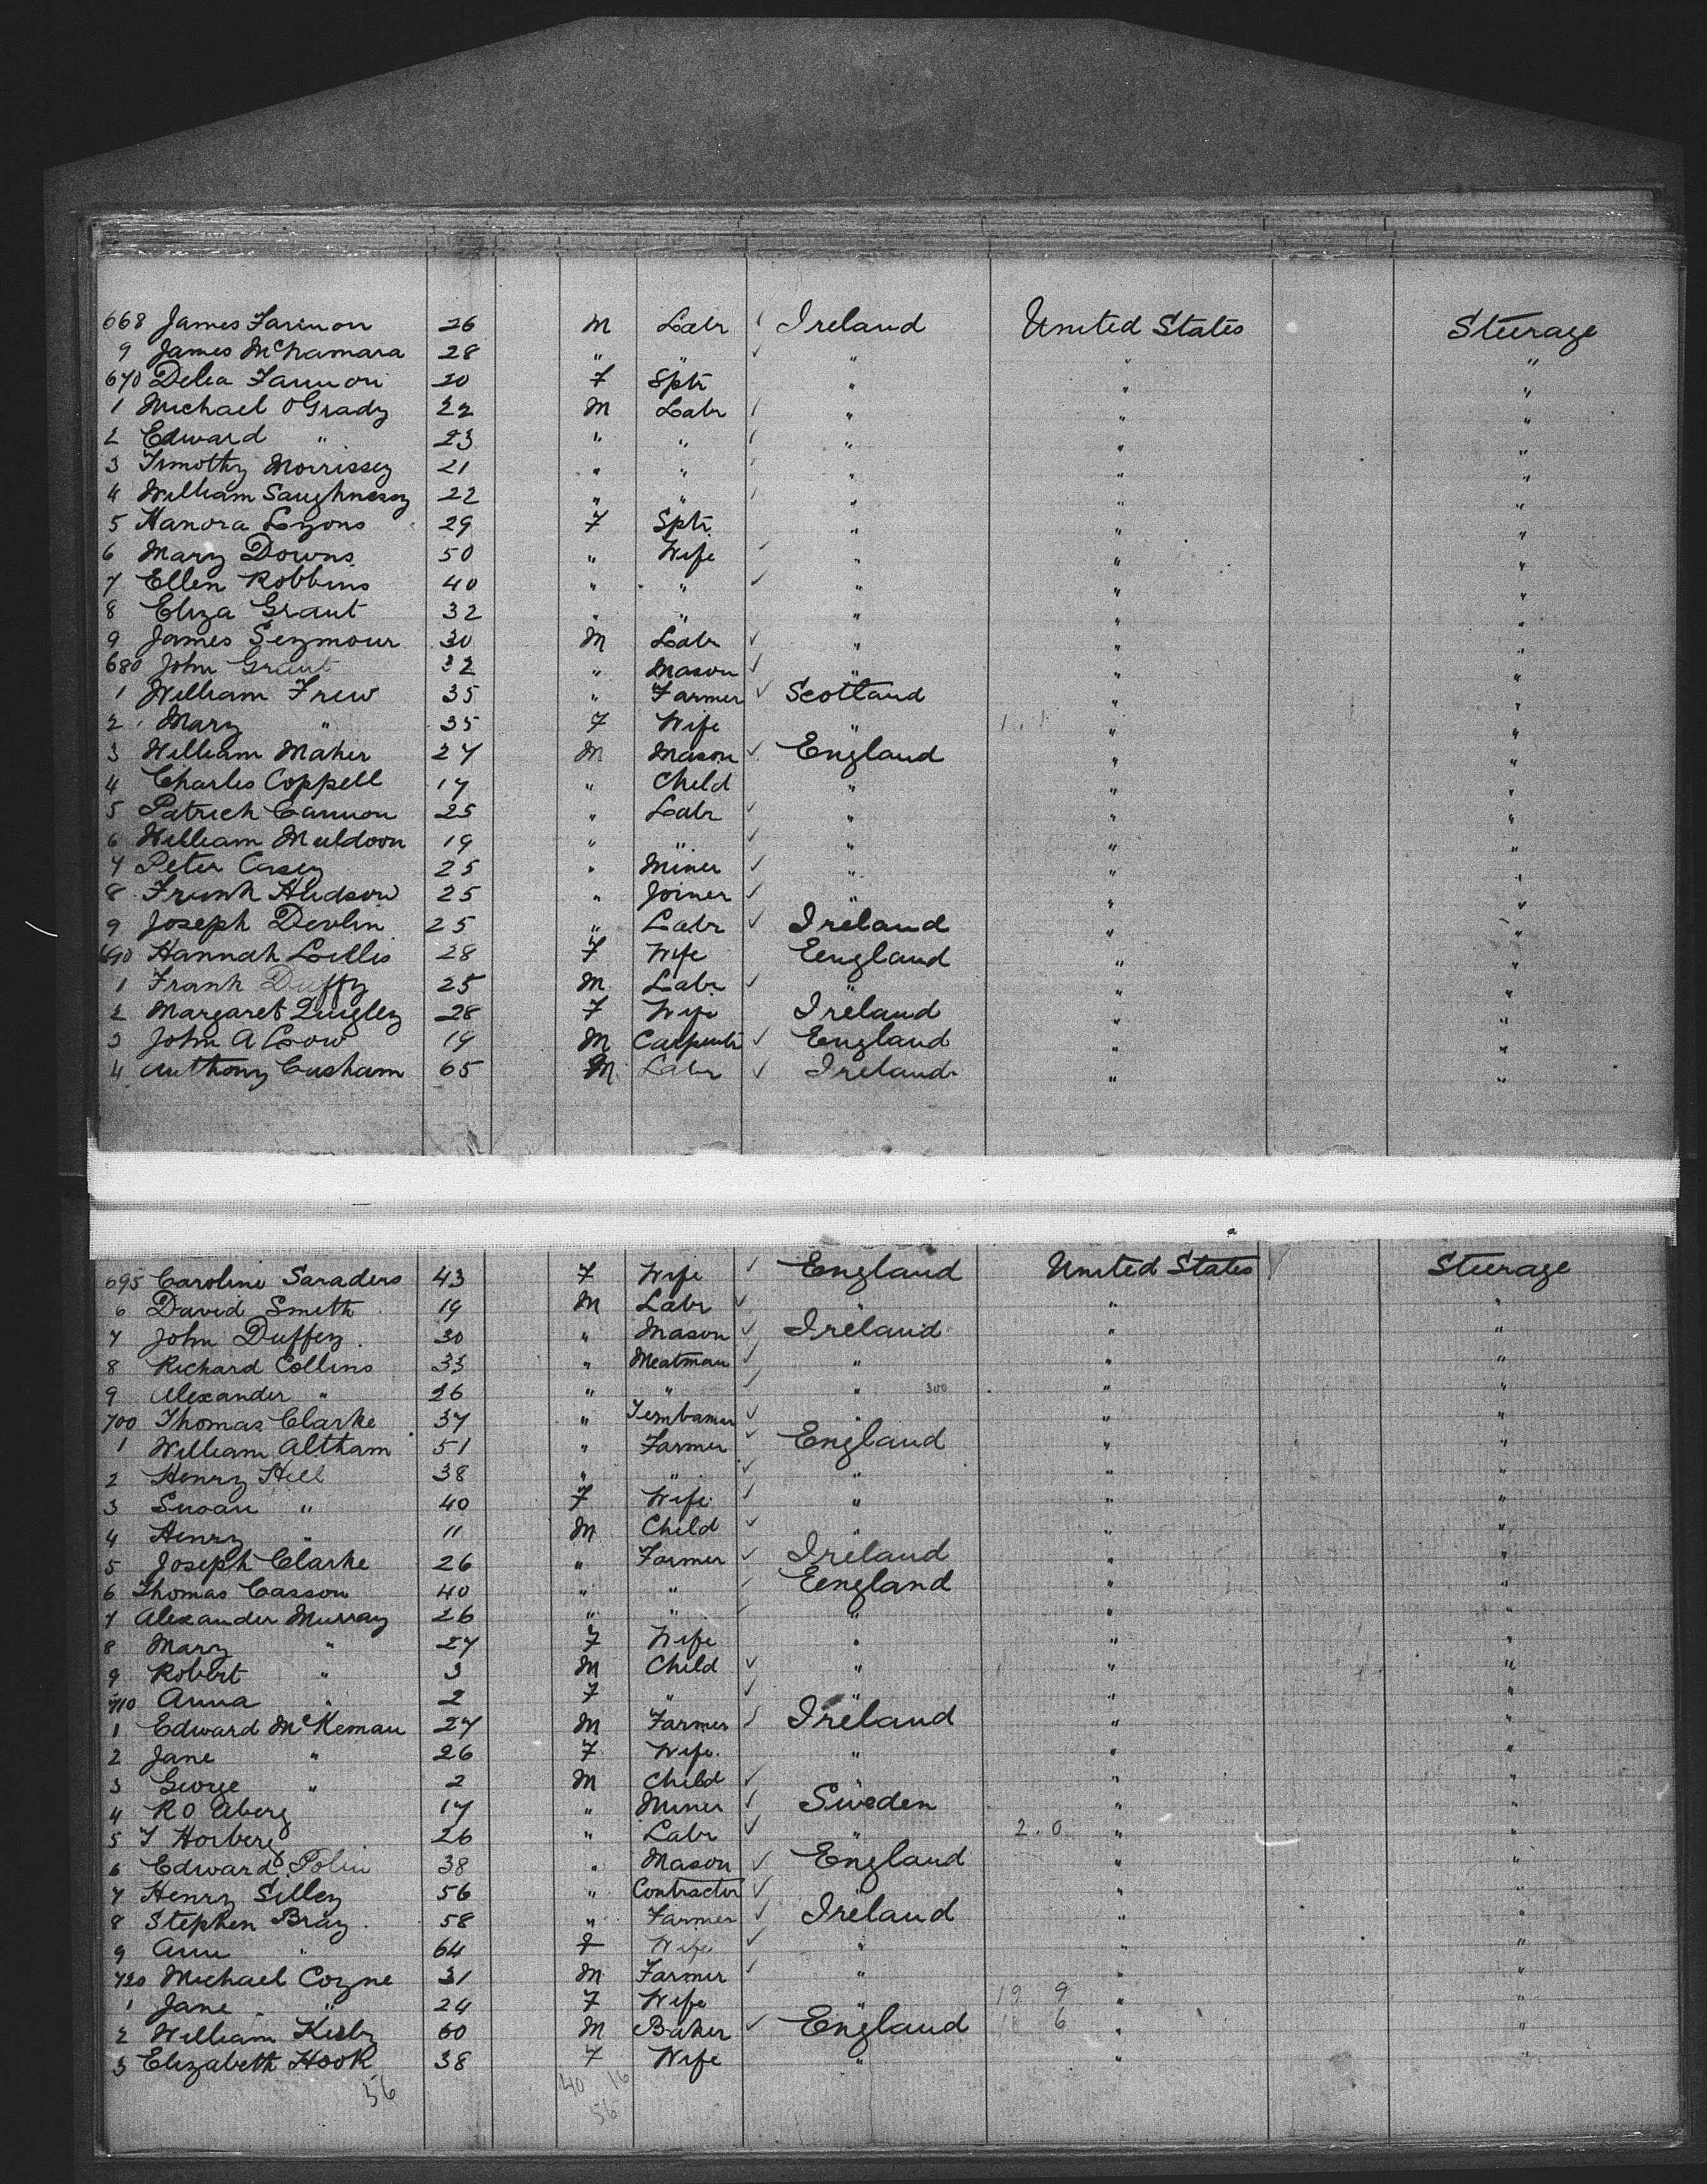 668 James Farinon 26 M Labr ✓ Ireland United States Steerage
9 James McNamara 28 " " ✓ " " "
670 Delia Fannon 20 F Sptr " " "
1 Michael O'Grady 22 M Labr ✓ " " "
2 Edward " 23 " " ✓ " " "
3 Timothy Morrissey 21 " " ✓ " " "
4 William Saughnessy 22 " " ✓ " " "
5 Hanora Lyons 29 F Sptr " " "
6 Mary Downs 50 " Wife ✓ " " "
7 Ellen Robbins 40 " " ✓ " " "
8 Eliza Grant 32 " " " " "
9 James Seymour 30 M Labr ✓ " " "
680 John Grant 32 " Mason ✓ " " "
1 William Frew 35 " Farmer ✓ Scotland " "
2 Mary " 35 F Wife " " "
3 William Maher 27 M Mason ✓ England " "
4 Charles Coppell 17 " Child " " "
5 Patrick Cannon 25 " Labr ✓ " " "
6 William Muldoon 19 " " ✓ " " "
7 Peter Casey 25 " Miner ✓ " " "
8 Frank Hudson 25 " Joiner ✓ " " "
9 Joseph Devlin 25 " Labr ✓ Ireland " "
690 Hannah Lillis 28 F Wife England " "
1 Frank Duffy 25 M Labr ✓ " " "
2 Margaret Quigley 28 F Wife Ireland " "
3 John A Crow 19 M Carpentr ✓ England " "
4 Anthony Cusham 65 M Labr ✓ Ireland " "
695 Caroline Saraders 43 F Wife ✓ England United States Steerage
6 David Smith 19 M Labr ✓ " " "
7 John Duffey 30 " Mason ✓ Ireland " "
8 Richard Collins 33 " Meatman ✓ " " "
9 Alexander " 26 " " ✓ " 300 " "
700 Thomas Clarke 37 " ✓ " " "
1 William Altham 51 " Farmer ✓ England " "
2 Henry Hill 38 " " ✓ " " "
3 Susan " 40 F Wife ✓ " " "
4 Henry " 11 M Child ✓ " " "
5 Joseph Clarke 26 " Farmer ✓ Ireland " "
6 Thomas Casson 40 " " ✓ England " "
7 Alexander Murray 26 " " ✓ " " "
8 Mary " 27 F Wife " " "
9 Robert " 3 M Child ✓ " " "
710 Anna " 2 F " ✓ " " "
1 Edward McKeman 27 M Farmer ✓ Ireland " "
2 Jane " 26 F Wife " " "
3 George " 2 M Child ✓ " " "
4 R O Aberg 17 " Miner ✓ Sweden " "
5 T Horberg 26 " Labr ✓ " 2.0 " "
6 Edward Polin 38 " Mason ✓ England " "
7 Henry Silley 56 " Contractor ✓ " " "
8 Stephen Bray 58 " Farmer ✓ Ireland " "
9 Ann " 64 F Wife ✓ " " "
720 Michael Coyne 31 M Farmer ✓ " " "
1 Jane " 24 F Wife " 19 9 " "
2 William Kirby 60 M Baker ✓ England 18 6 " "
3 Elizabeth Hook 38 F Wife " " "
56 40 16
56